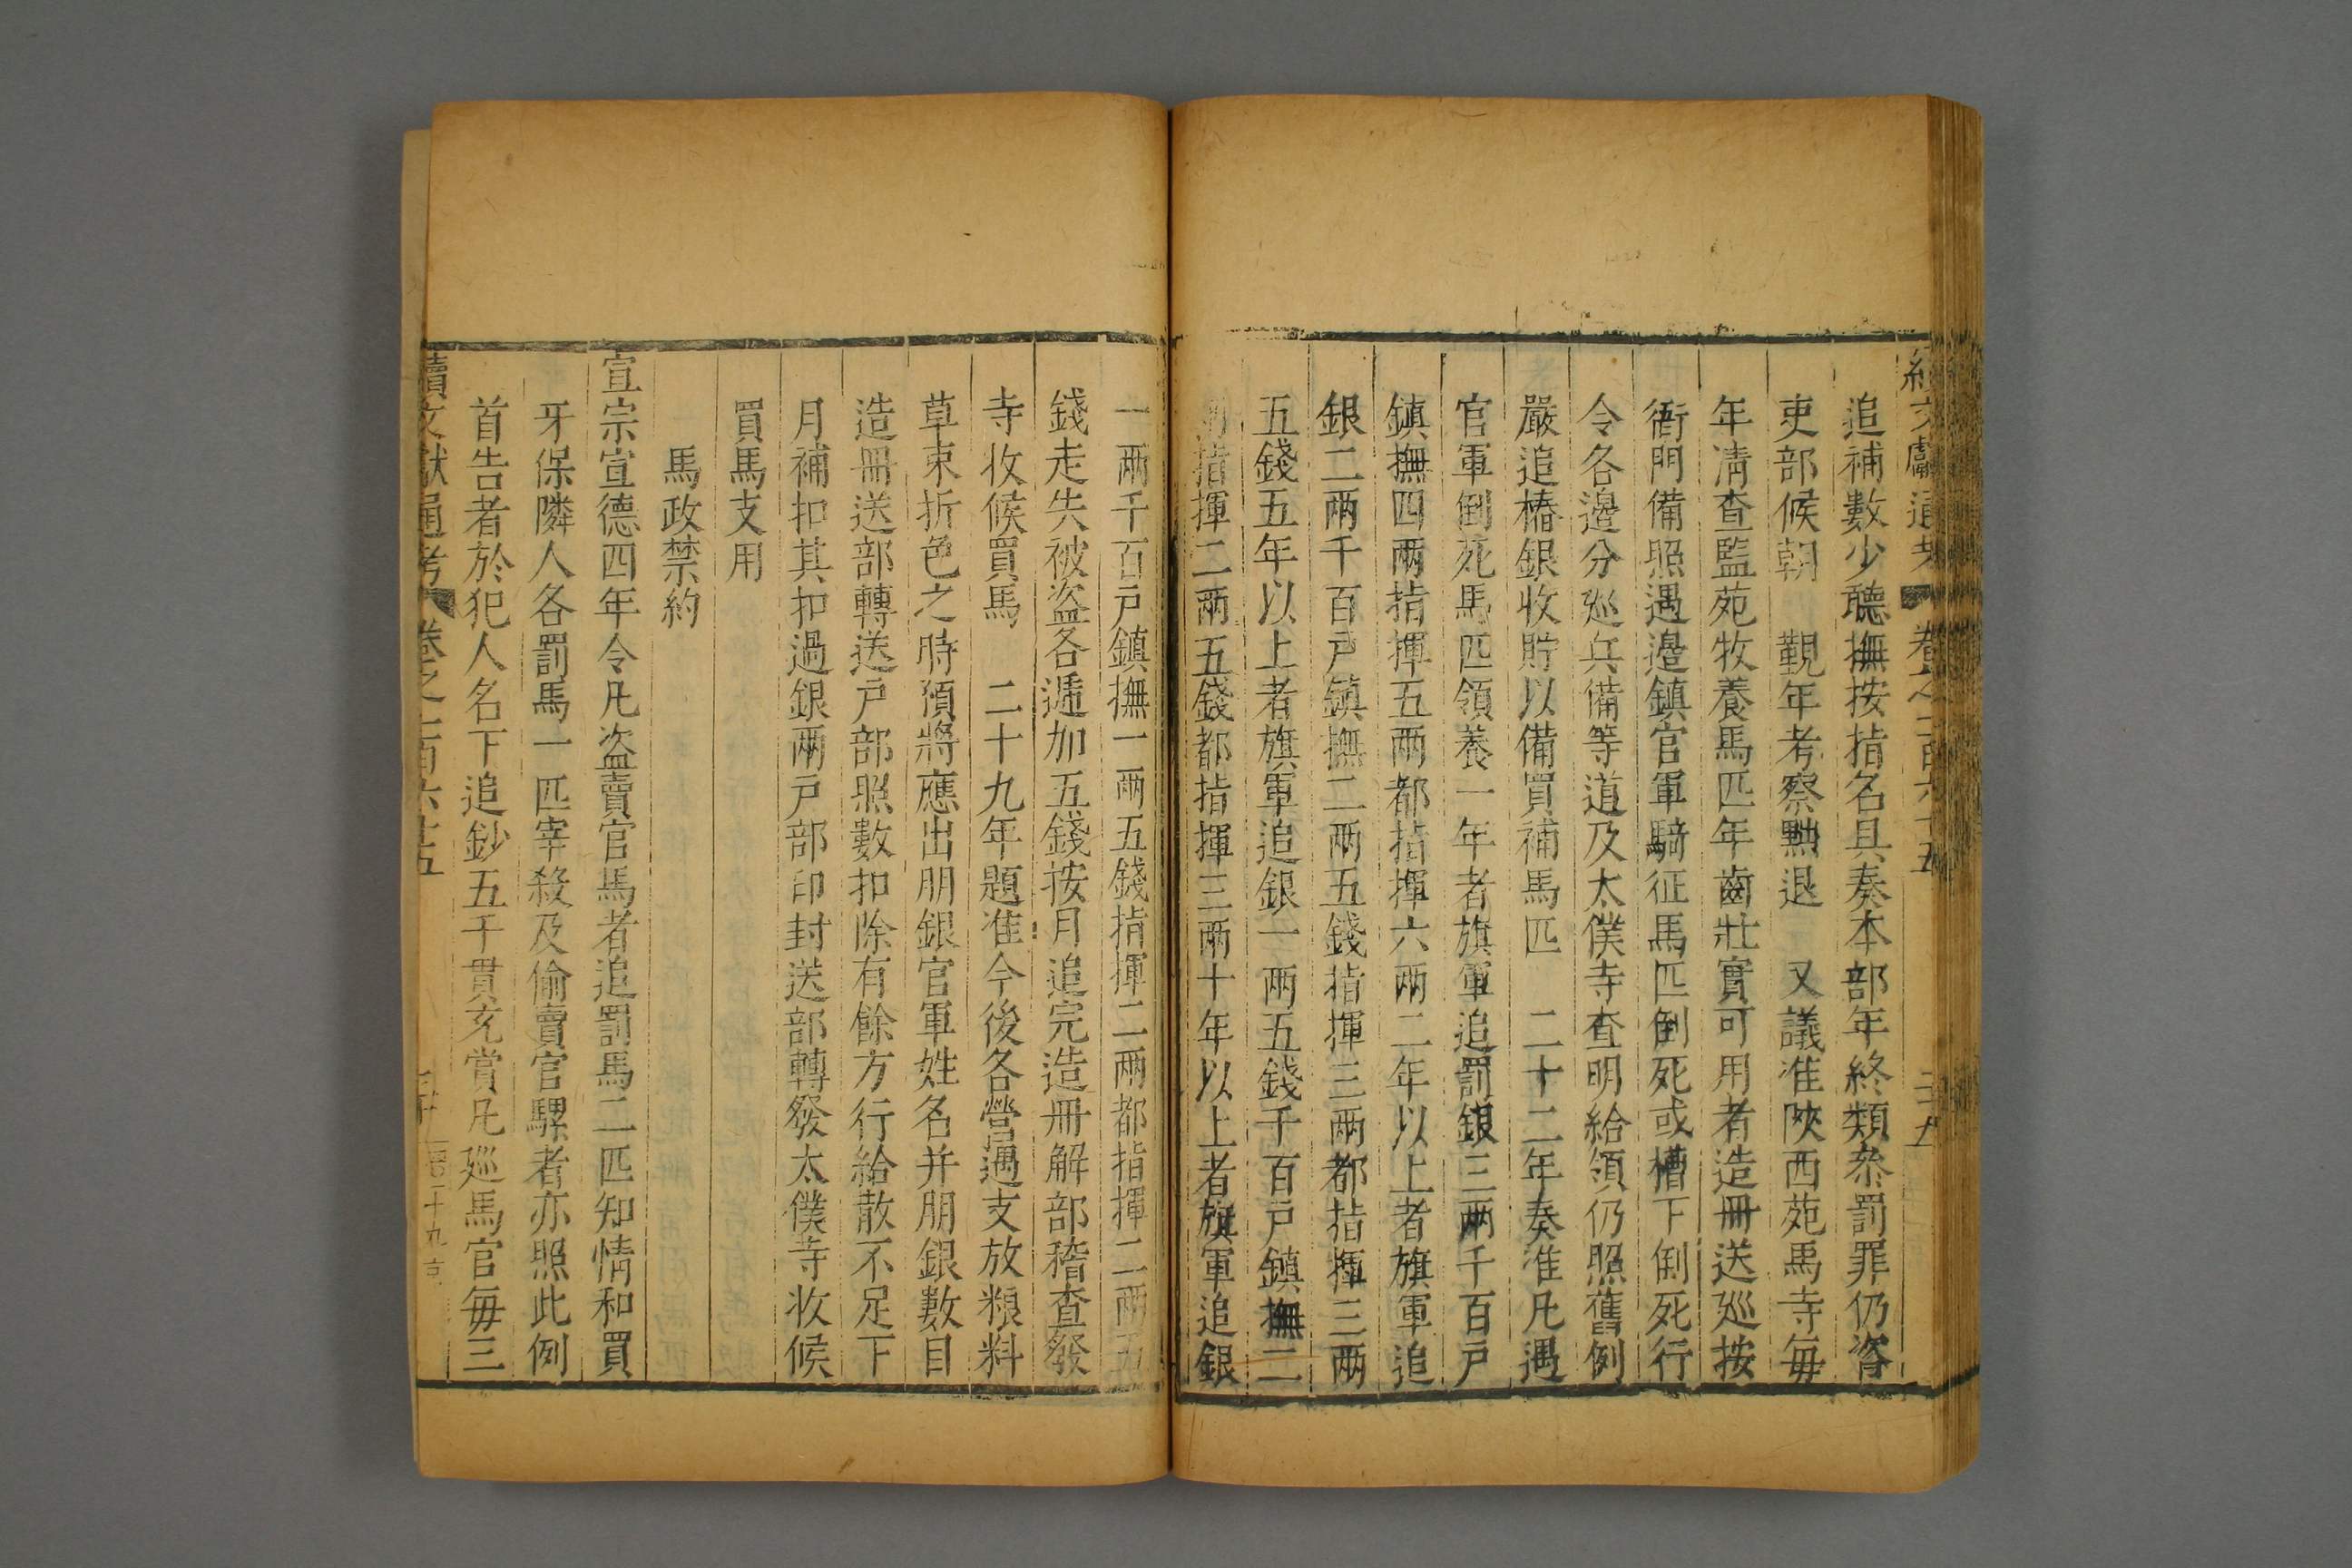 續文獻通考 卷之一百六十五
追補數少聽撫按指名具奏本部年終類叅罰罪仍咨
吏部候朝 覲年考察黜退 又議准陝西苑馬寺每
年清查監苑牧養馬匹年齒壯實可用者造冊送廵按
衙門備照遇邊鎮官軍騎征馬匹倒死或槽下倒死行
令各邊分廵兵備等道及太僕寺查明給領仍照舊例
嚴追樁銀收貯以備買補馬匹 二十二年奏准凡遇
官軍倒死馬匹領養一年者旗軍追罰銀三兩千百戶
鎮撫四兩指揮五兩都指揮六兩二年以上者旗軍追
銀二兩千百戶鎮撫二兩五錢指揮三兩都指揮三兩
五錢五年以上者旗軍追銀一兩五錢千百戶鎮撫二
指揮二兩五錢都指揮三兩十年以上者旗軍追銀
一兩千百戶鎮撫一兩五錢指揮二兩都指揮二兩五
錢走失被盜各遞加五錢按月追完造冊解部稽查發
寺收候買馬 二十九年題准今後各營遇支放粮料
草束折色之時預將應出朋銀官軍姓名并朋銀數目
造冊送部轉送戶部照數扣除有餘方行給散不足下
月補扣其扣過銀兩戶部印封送部轉發太僕寺收候
買馬支用
馬政禁約
宣宗宣德四年令凡盜賣官馬者追罰馬二匹知情和買
牙保隣人各罰馬一匹宰殺及偷賣官騾者亦照此例
首告者於犯人名下追鈔五千貫充賞凡廵馬官每三
續文獻通考 卷之一百六十五